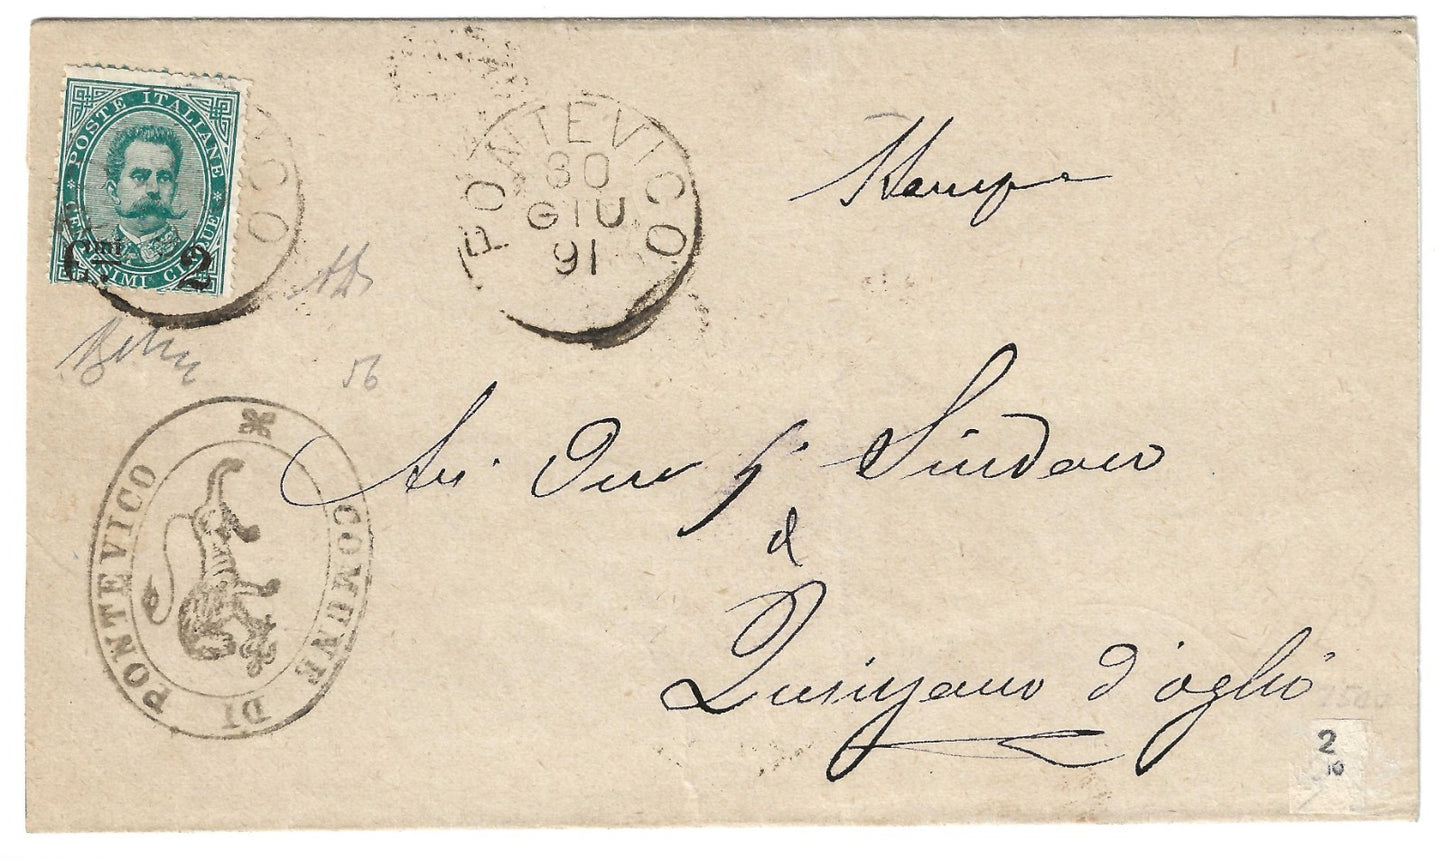 POSTE ITALIANE
CENTESIMI CINQUE
Cmi 2
PONTEVICO
30
GIU
91
Stampe
56
COMUNE DI PONTEVICO
Sindaco
d
Quinzano d'oglio
2
10